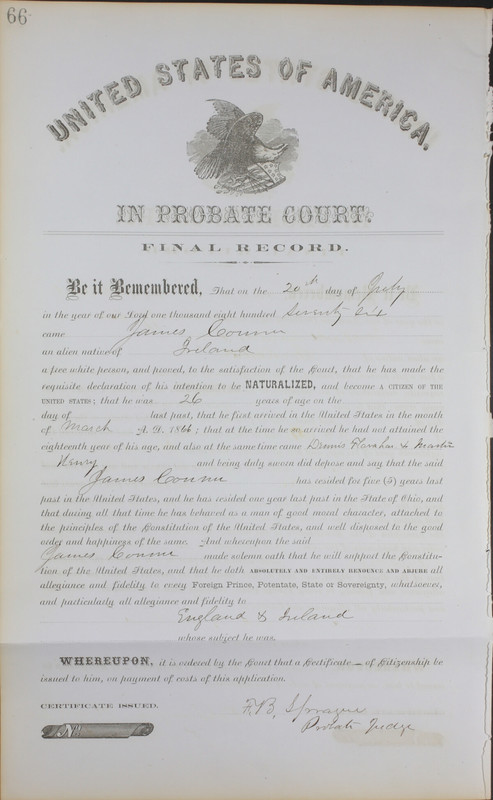 66
UNITED STATES OF AMERICA.
IN PROBATE COURT.
FINAL RECORD.
Be it Remembered, That on the 20th day of July
in the year of our Lord one thousand eight hundred Seventy Six
came James Connor
an alien native of Ireland
a free white person, and proved, to the satisfaction of the Court, that he has made the
requisite declaration of his intention to be NATURALIZED, and become A CITIZEN OF THE
UNITED STATES; that he was 26 years of age on the
day of last past, that he first arrived in the United States in the month
of March A. D. 1866; that at the time he so arrived he had not attained the
eighteenth year of his age, and also at the same time came Dennis & Martin
Henry and being duly sworn did depose and say that the said
James Connor has resided for five (5) years last
past in the United States, and he has resided one year last past in the State of Ohio, and
that during all that time he has behaved as a man of good moral character, attached to
the principles of the Constitution of the United States, and well disposed to the good
order and happiness of the same. And whereupon the said
James Connor made solemn oath that he will support the Constitu-
tion of the United States, and that he doth ABSOLUTELY AND ENTIRELY RENOUNCE AND ABJURE all
allegiance and fidelity to every Foreign Prince, Potentate, State or Sovereignty, whatsoever,
and particularly all allegiance and fidelity to
England & Ireland
whose subject he was.
WHEREUPON, it is ordered by the Court that a Certificate of Citizenship be
issued to him, on payment of costs of this application.
CERTIFICATE ISSUED.
F. B. Sprague
Probate Judge
No.